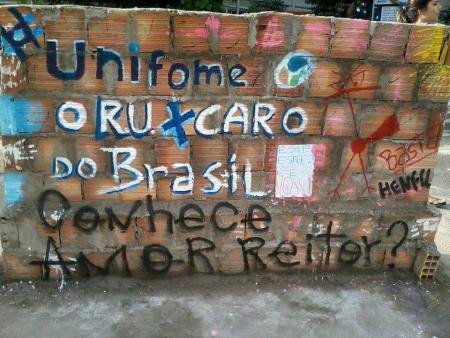 # Unifome
O RU + CARO
DO BRASIL
ESSE
ESPAÇO
É
Conhece
AMOR Reitor?
BASTA
HENFIL